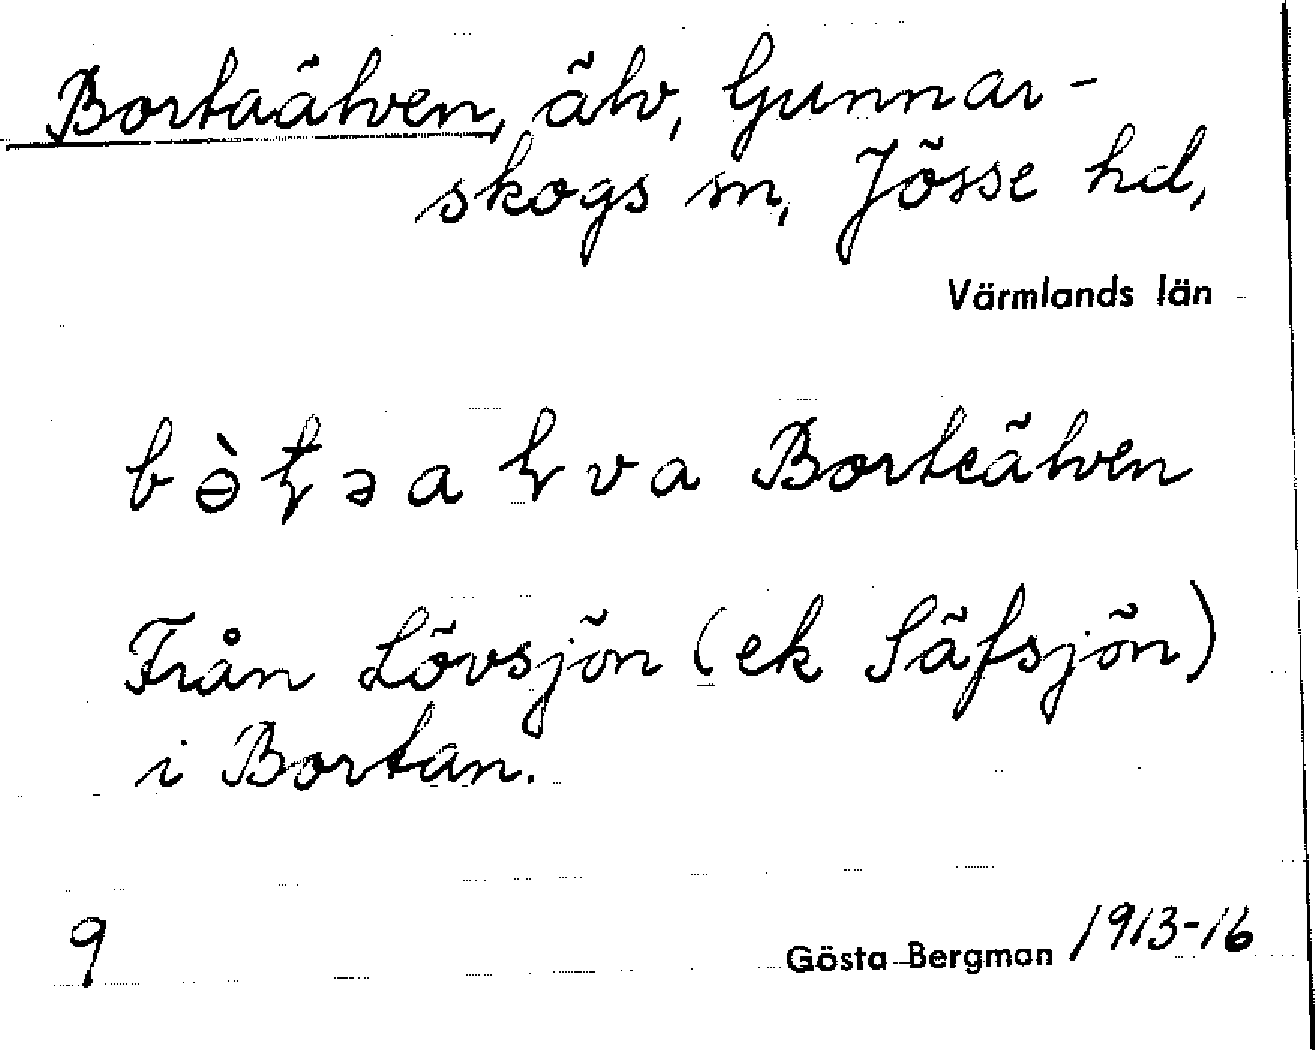 Bortaälven, älv, Gunnar-
skogs sn, Jösse hd,
Värmlands län
Borteälven
Från Lövsjön (ek Säfsjön)
i Bortan.
9
Gösta Bergman 1913-16